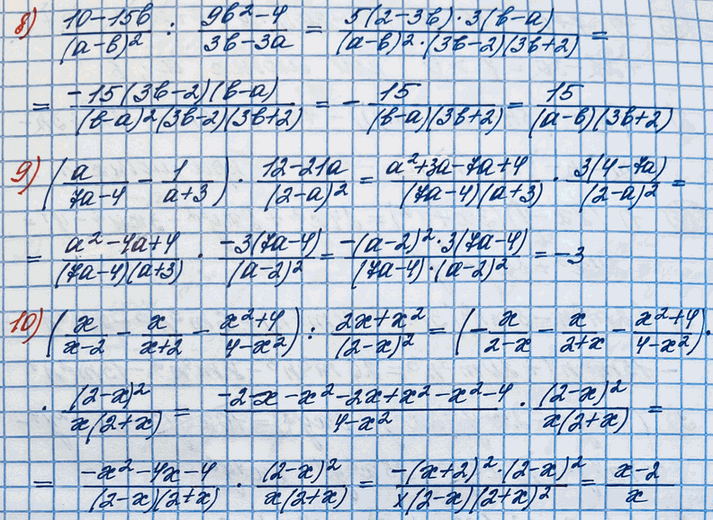 8) (10-15b)/(a-b)² : (9b²-4)/(3b-3a) = (5(2-3b)·3(b-a))/((a-b)²·(3b-2)(3b+2)) =
= (-15(3b-2)(b-a))/((b-a)²(3b-2)(3b+2)) = - 15/((b-a)(3b+2)) = 15/((a-b)(3b+2))
9) (a/(7a-4) - 1/(a+3)) · (12-21a)/(2-a)² = (a²+3a-7a+4)/((7a-4)(a+3)) · (3(4-7a))/(2-a)² =
= (a²-4a+4)/((7a-4)(a+3)) · (-3(7a-4))/(a-2)² = (-(a-2)²·3(7a-4))/((7a-4)·(a-2)²) = -3
10) (x/(x-2) - x/(x+2) - (x²+4)/(4-x²)) : (2x+x²)/(2-x)² = (-x/(2-x) - x/(2+x) - (x²+4)/(4-x²)) ·
· (2-x)²/(x(2+x)) = (-2x-x²-2x+x²-x²-4)/(4-x²) · (2-x)²/(x(2+x)) =
= (-x²-4x-4)/((2-x)(2+x)) · (2-x)²/(x(2+x)) = (-(x+2)²·(2-x)²)/(x(2-x)(2+x)²) = (x-2)/x